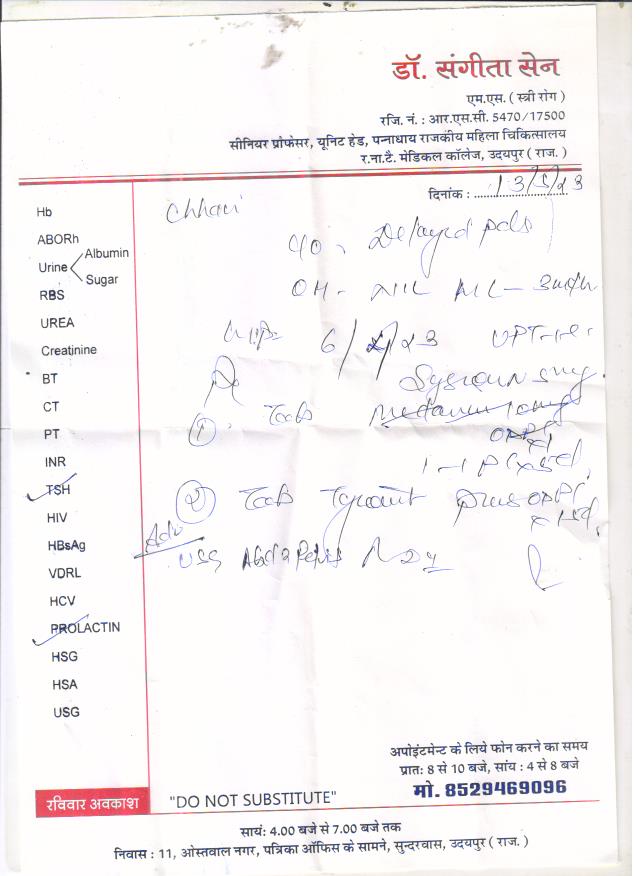 डॉ. संगीता सेन
एम.एस. ( स्त्री रोग )
रजि. नं. : आर.एस.सी. 5470/17500
सीनियर प्रोफेसर, यूनिट हेड, पन्नाधाय राजकीय महिला चिकित्सालय
र.ना.टै. मेडिकल कॉलेज, उदयपुर ( राज. )
दिनांक : 13/5/23
Hb
ABORh
Urine Albumin
Sugar
RBS
UREA
Creatinine
BT
CT
PT
INR
TSH
HIV
HBsAg
VDRL
HCV
PROLACTIN
HSG
HSA
USG
Chhavi
c/o Delayed pds
OH - NIL ML -
LMP 6/ /23 UPT -ve
①. Tab
② Tab plus
Adv
USG Abd & Pelvis
अपोइंटमेन्ट के लिये फोन करने का समय
प्रात: 8 से 10 बजे, सांय : 4 से 8 बजे
मो. 8529469096
रविवार अवकाश
"DO NOT SUBSTITUTE"
सायं: 4.00 बजे से 7.00 बजे तक
निवास : 11, ओस्तवाल नगर, पत्रिका ऑफिस के सामने, सुन्दरवास, उदयपुर ( राज. )